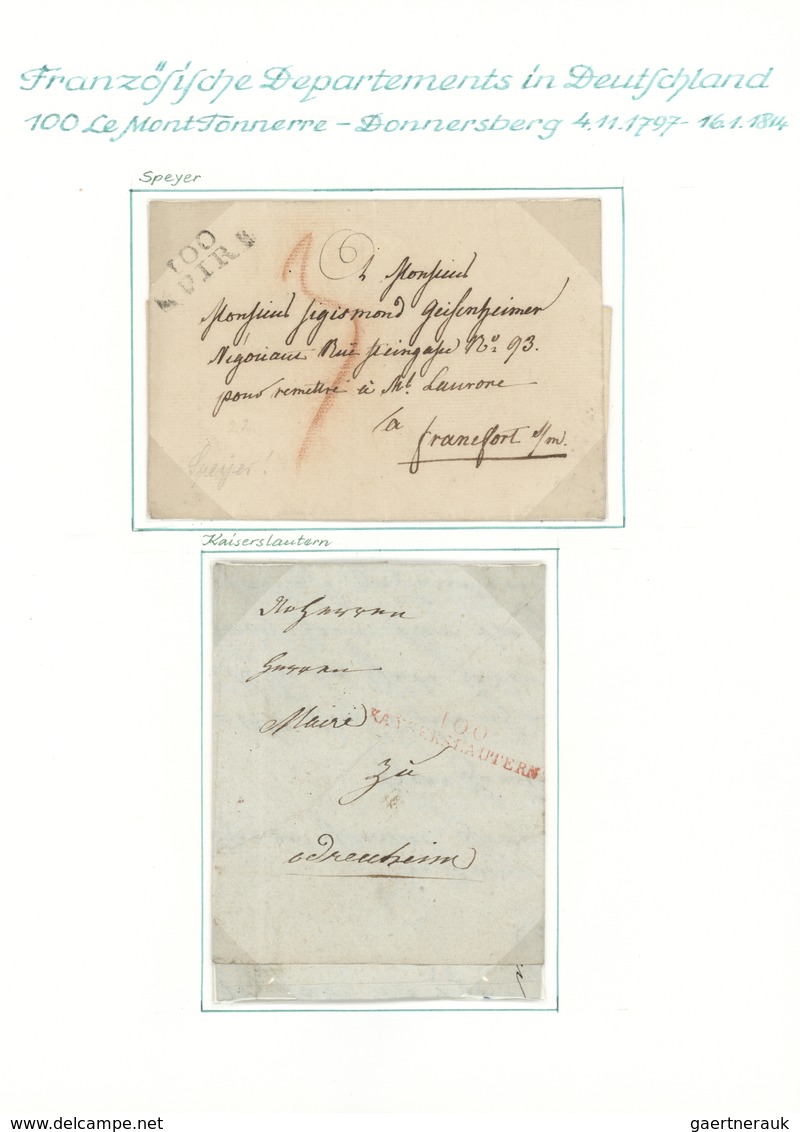 Französische Departements in Deutschland
100 Le Mont Tonnerre – Donnersberg 4.11.1797 - 16.1.1814
Speyer
100
PIR
A Monsieur
Monsieur Sigismond Geisenheimer
Négociant Rüe Steingasse No. 93.
pour remettre à Mr. Laurore
à
francfort s/m.
Speyer!
Kaiserslautern
Herren
Maire
100
KAYSERSLAUTERN
zu
© www.delcampe.net
gaertnerauk